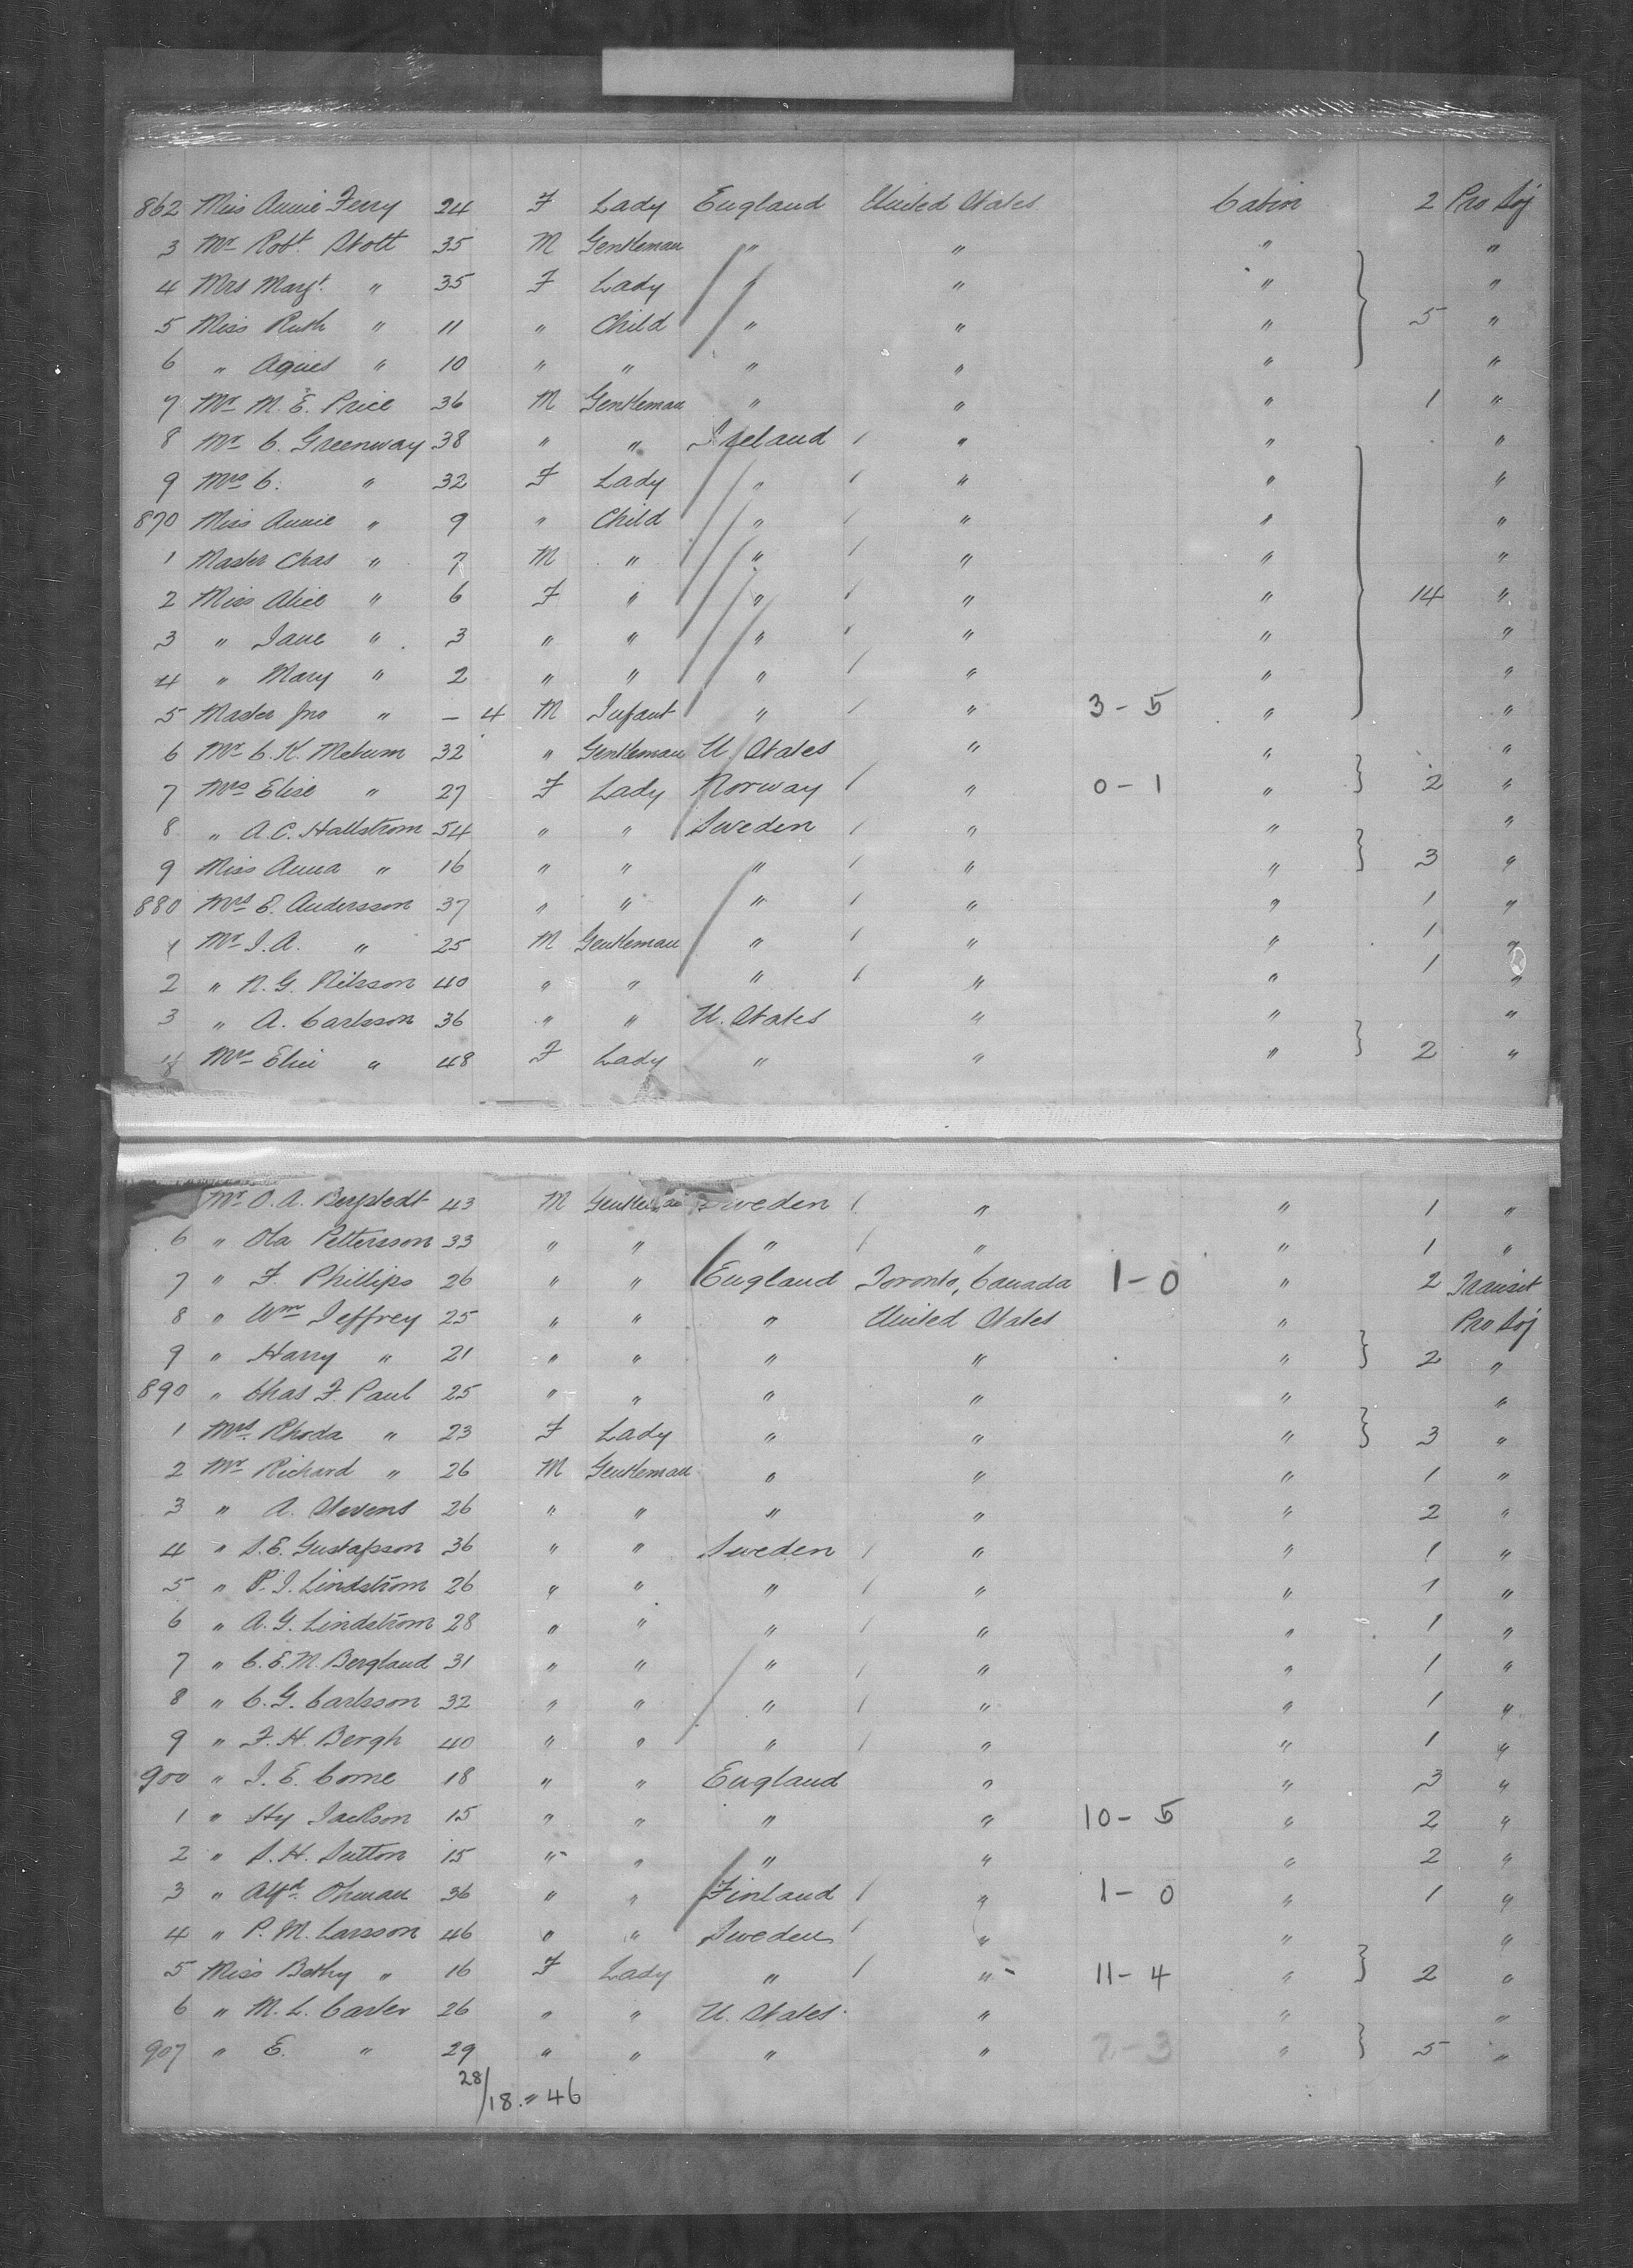 862 Miss Annie Ferry 24 F Lady England United States Cabin 2 Pro Soj
3 Mr Robt. Stott 35 M Gentleman " " " "
4 Mrs Margt. " 35 F Lady " " " "
5 Miss Ruth " 11 " Child " " " 5 "
6 " Agnes " 10 " " " " " "
7 Mr M. E. Price 36 M Gentleman " " " 1 "
8 Mr C. Greenway 38 " " Ireland / " " "
9 Mrs C. " 32 F Lady " / " " "
870 Miss Annie " 9 " Child " / " " "
1 Master Chas " 7 M " " / " " "
2 Miss Alice " 6 F " " / " " 14 "
3 " Jane " 3 " " " / " " "
4 " Mary " 2 " " " / " " "
5 Master Jno " – 4 M Infant " / " 3 - 5 " "
6 Mr C. K. 32 " Gentleman U. States " " "
7 Mrs Elise " 27 F Lady Norway / " 0 - 1 " 2 "
8 " A. C. Hallstrom 54 " " Sweden / " " "
9 Miss Anna " 16 " " " / " " 3 "
880 Mrs E. Andersson 37 " " " / " " 1 "
1 Mr J. A. " 25 M Gentleman " / " " 1 "
2 " N. G. Nilsson 40 " " " / " " 1 "
3 " A. Carlsson 36 " " U. States " " "
4 Mrs " 48 F Lady " " " 2 "
Mr O. A. Bergstedt 43 M Gentleman Sweden / " " 1 "
6 " Ola Pettersson 33 " " " / " " 1 "
7 " F. Phillips 26 " " England Toronto, Canada 1 - 0 " 2 Transit
8 " Wm Jeffrey 25 " " " United States " Pro Soj
9 " Harry " 21 " " " " " 2 "
890 " Chas F. Paul 25 " " " " " "
1 Mrs. Rhoda " 23 F Lady " " " 3 "
2 Mr Richard " 26 M Gentleman " " " 1 "
3 " A. Stevens 26 " " " " " 2 "
4 " S. E. Gustafsson 36 " " Sweden / " " 1 "
5 " P. J. Lindström 26 " " " / " " 1 "
6 " A. G. Lindström 28 " " " / " " 1 "
7 " C. E. M. Bergland 31 " " " / " " 1 "
8 " C. G. Carlsson 32 " " " / " " 1 "
9 " F. H. Bergh 40 " " " / " " 1 "
900 " J. E. Corne 18 " " England " " 3 "
1 " Hy Jackson 15 " " " " 10 - 5 " 2 "
2 " S. H. Sutton 15 " " " " " 2 "
3 " Alfd. Ohman 36 " " Finland / " 1 - 0 " 1 "
4 " P. M. Larsson 46 " " Sweden / " " "
5 Miss Bethy " 16 F Lady " / " 11 - 4 " 2 "
6 " M. L. Carter 26 " " U. States " " "
907 " E. " 29 " " " " 2 - 3 " 5 "
28/18. = 46